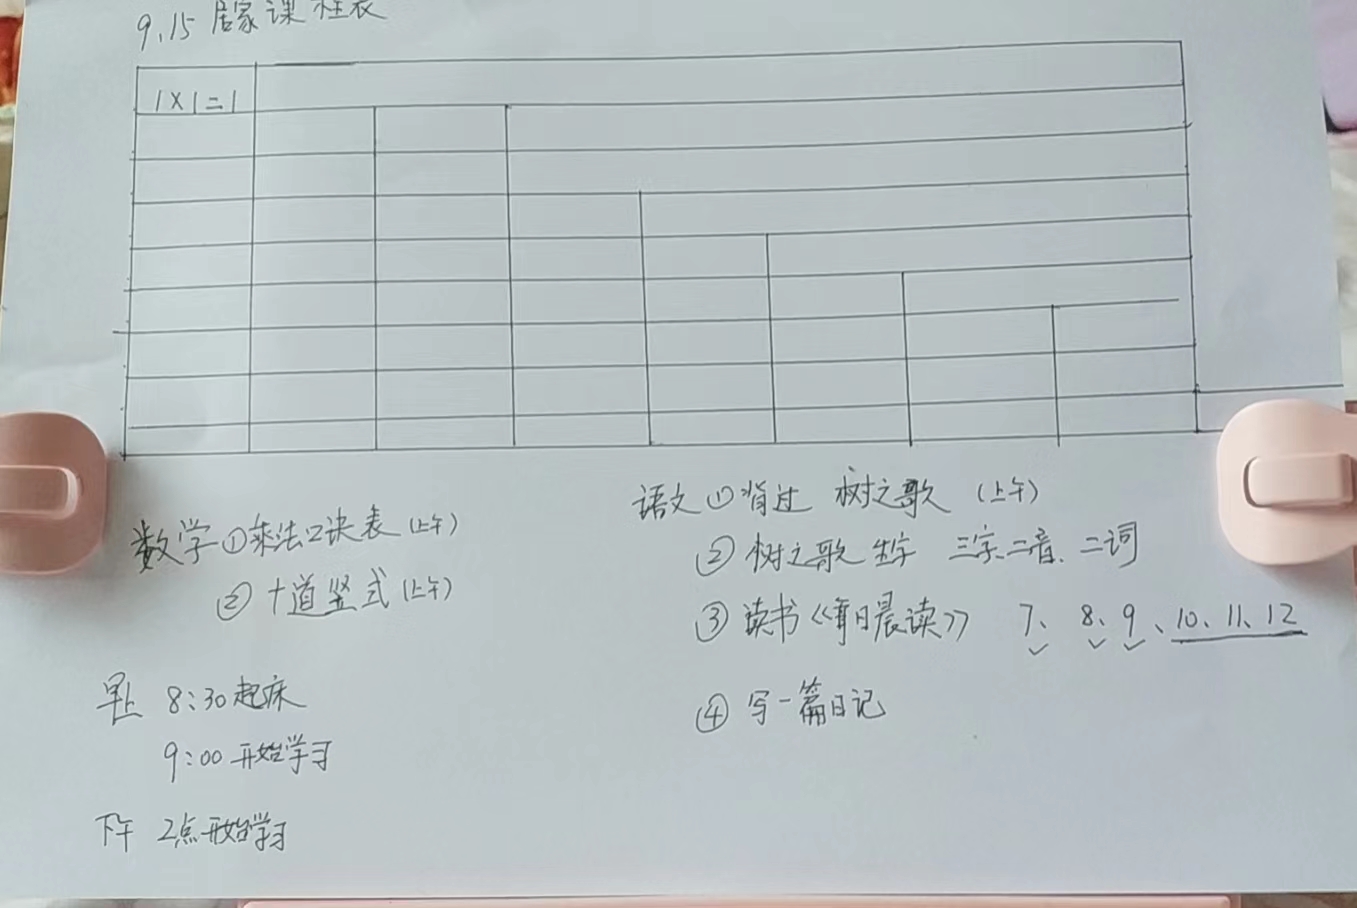 9.15 居家课程表
1×1=1
数学①乘法口诀表(上午)
②十道竖式(上午)
语文①背过 树之歌 (上午)
②树之歌 生字 三字、二音、二词
③读书《每日晨读》 7、8、9、10、11、12
④写一篇日记
早上 8:30起床
9:00开始学习
下午 2点开始学习